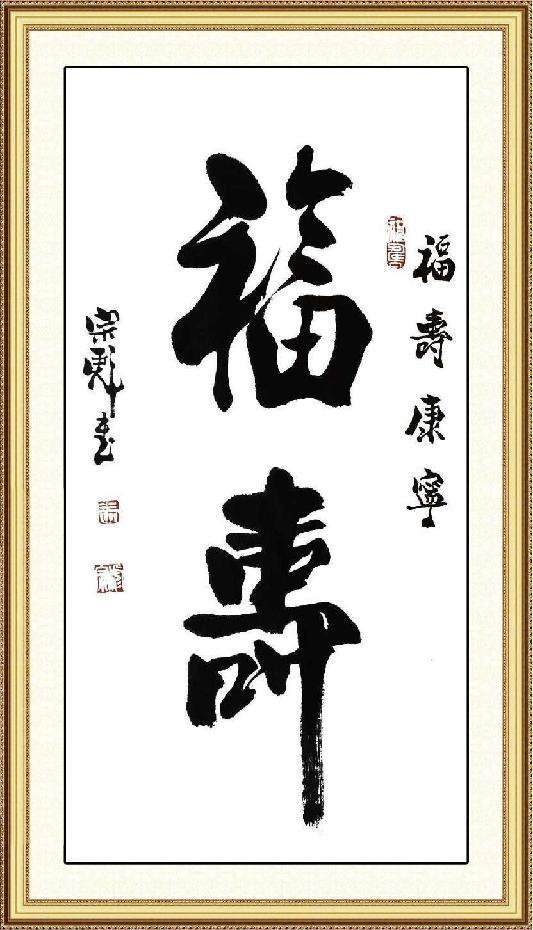 福壽康寧
福壽
宗彪書